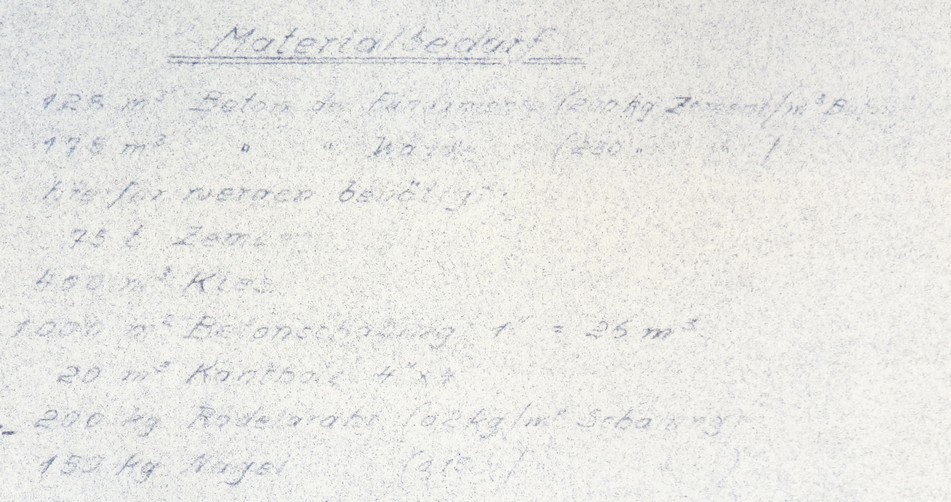 Materialbedarf
125 m³ Beton der Fundamente (200 kg Zement/m³ Beton
175 m³ " " Wände (250 " " )
hiefür werden benötigt:
75 t Zement
400 m³ Kies
1000 m² Betonschalung 1" = 26 m³
20 m³ Kantholz 4"x4
200 kg Rödeldraht (0,2 kg/m² Schalung)
150 kg Nägel (0,15